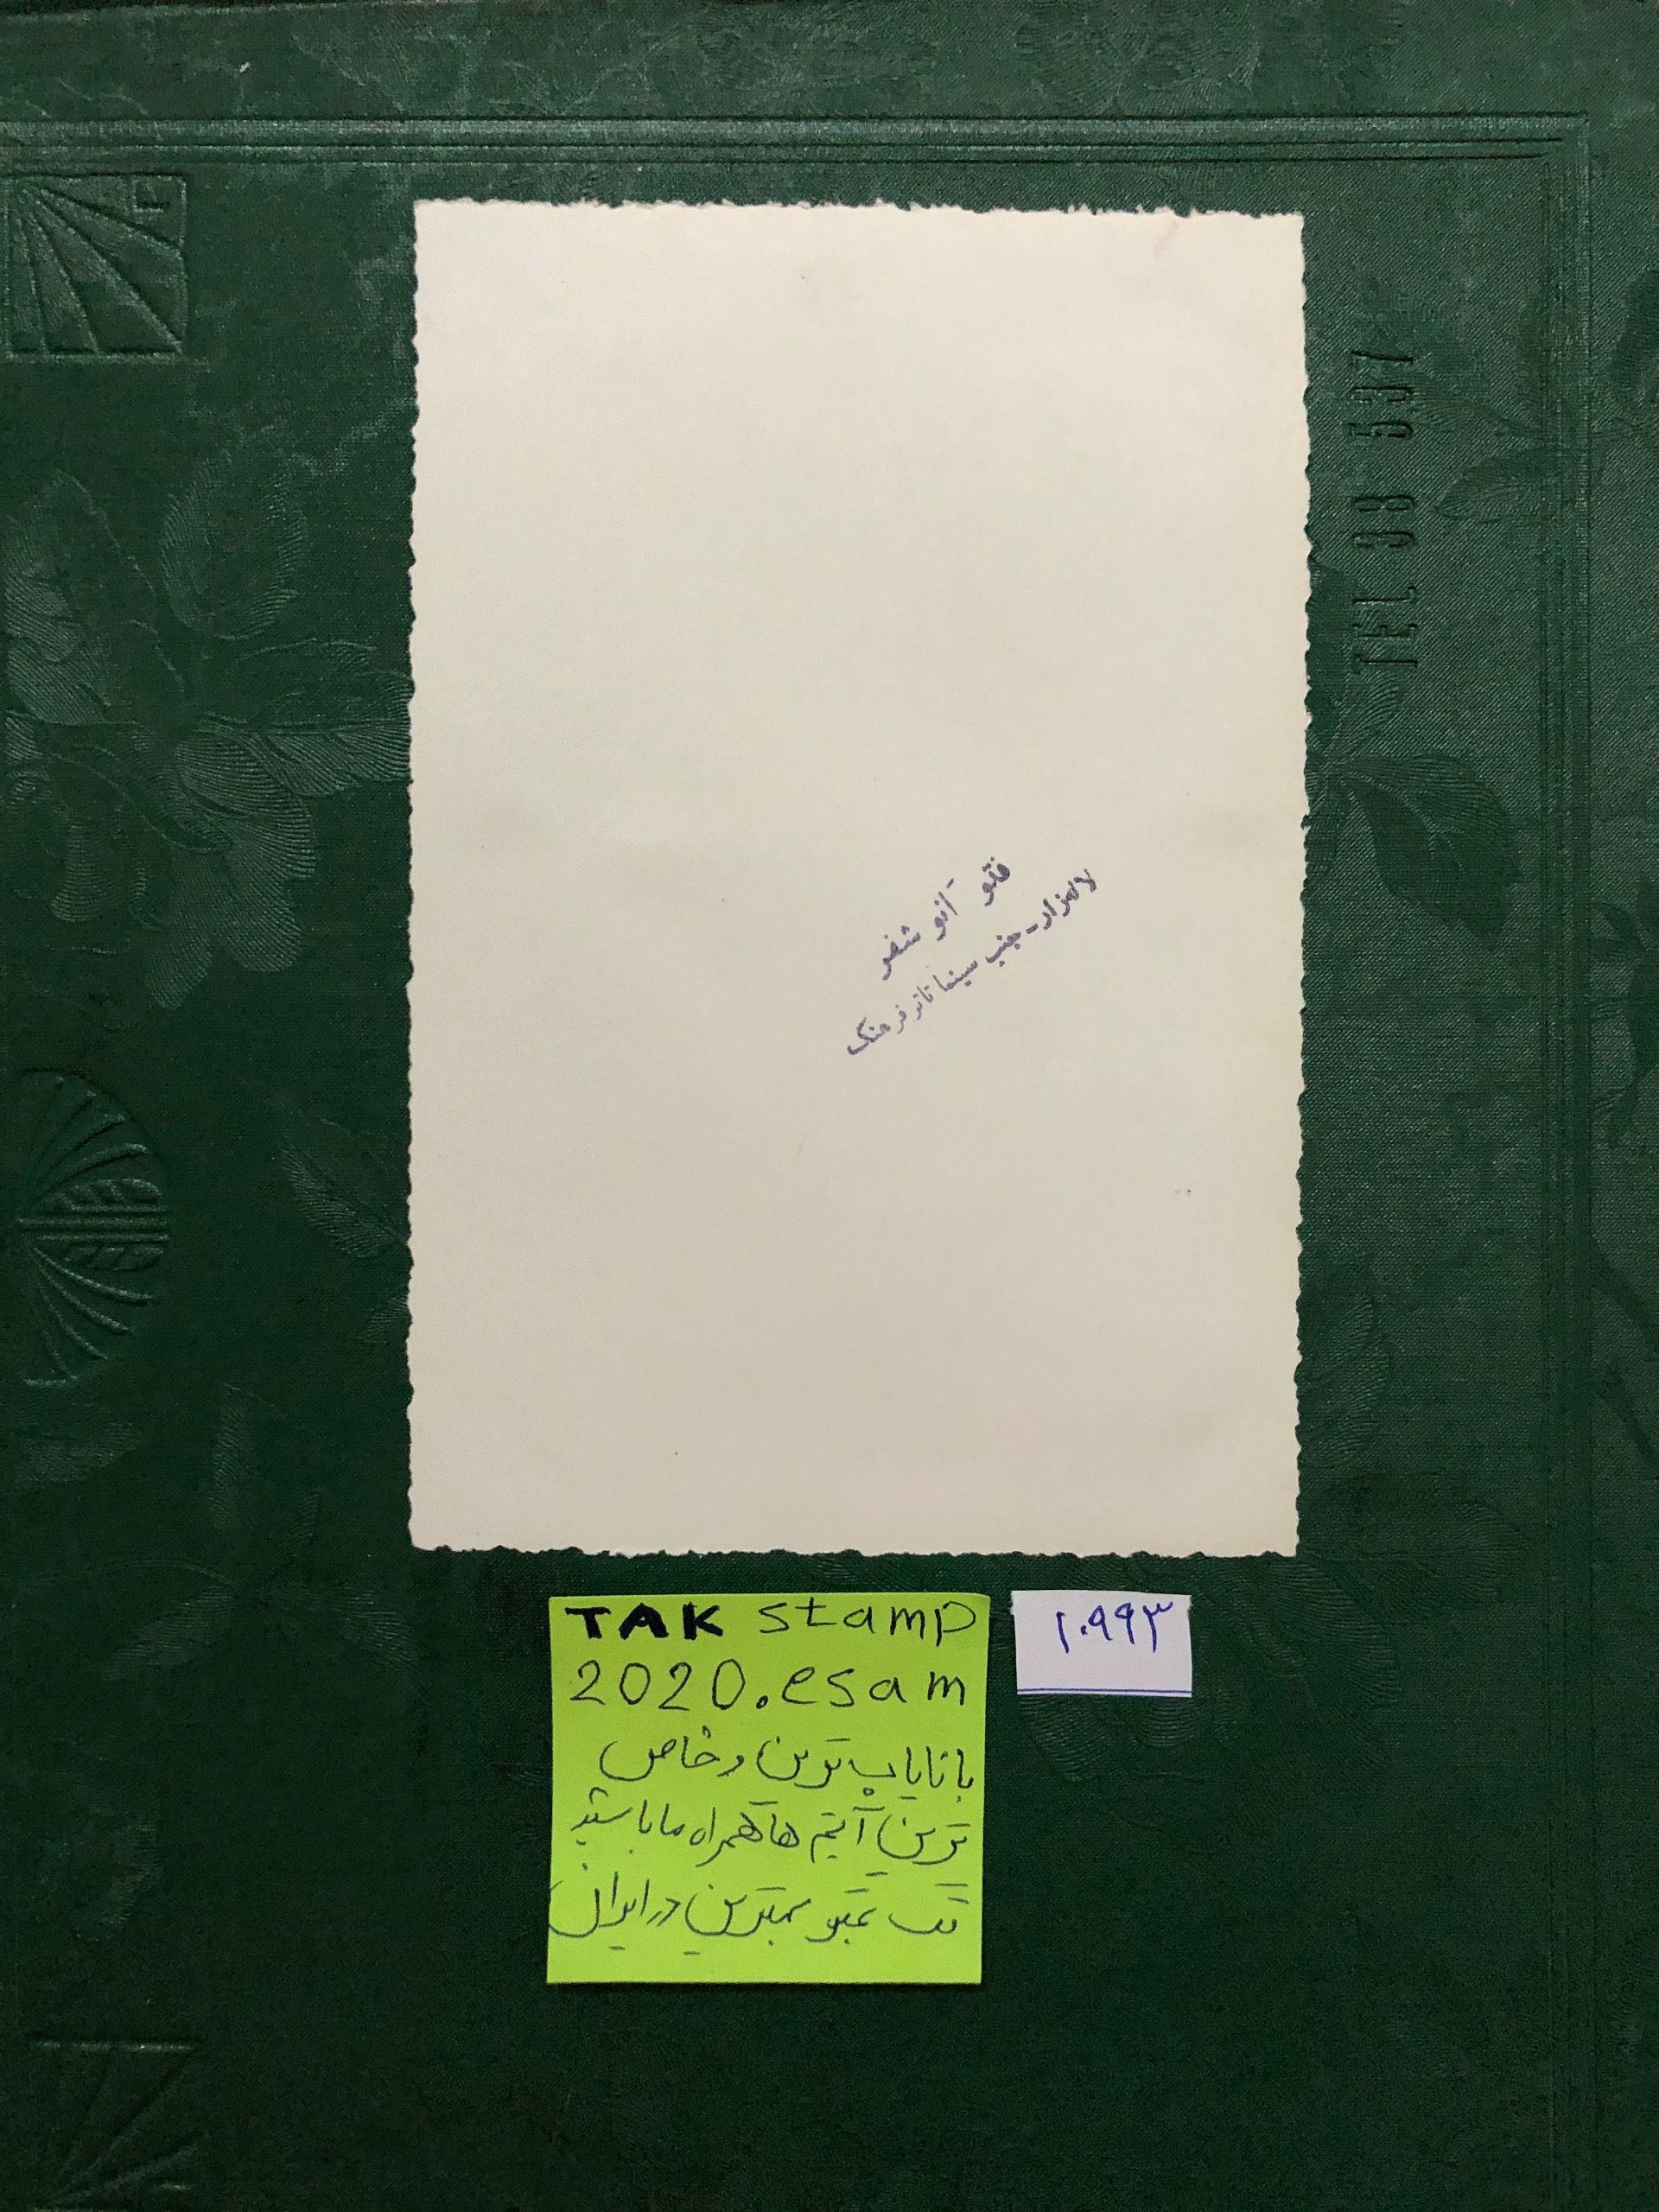 فتو آنو شفر
لاله‌زار - جنب سینما تاتر فرهنگ
TEL 38 537
TAK stamp
2020.esam
با نایاب ترین و خاص
ترین آیتم ها همراه ما باشید
تک تمبر بهترین در ایران
۱۰۹۹۳